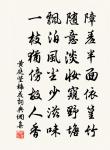 障羞半面依篁竹
隨意淡妝窺野塘
飄泊風塵少滋味
一枝猶傍故人香
黃庭堅梅花詞典網集